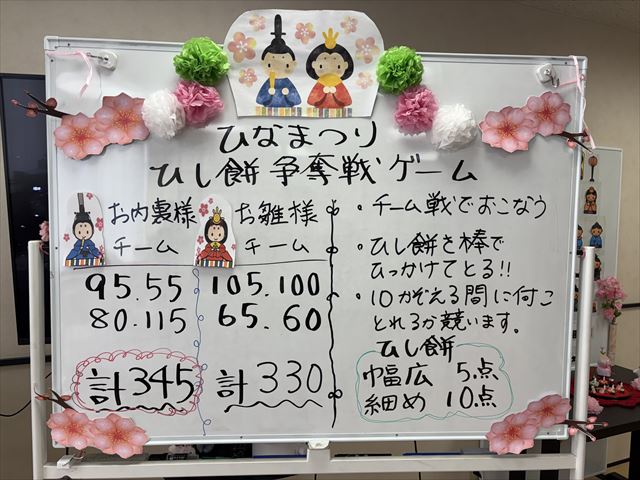 ひなまつり
ひし餅争奪戦ゲーム
お内裏様
チーム
95.55
80.115
計345
お雛様
チーム
105.100
65.60
計330
・チーム戦でおこなう
・ひし餅を棒で
ひっかけてとる!!
・10かぞえる間に何こ
とれるか競います。
ひし餅
幅広 5点
細め 10点